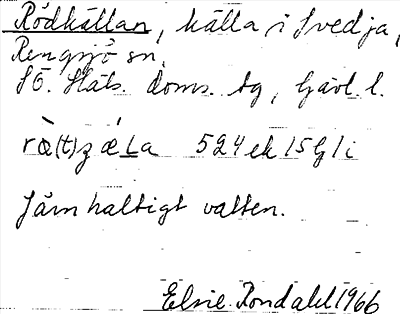 Rödkällan, källa i Svedja,
Rengsjö sn,
SÖ. Häls. doms. tg, Gävl. l.
524 ek 15 G/i
Järnhaltigt vatten.
Elsie Rondahl 1966